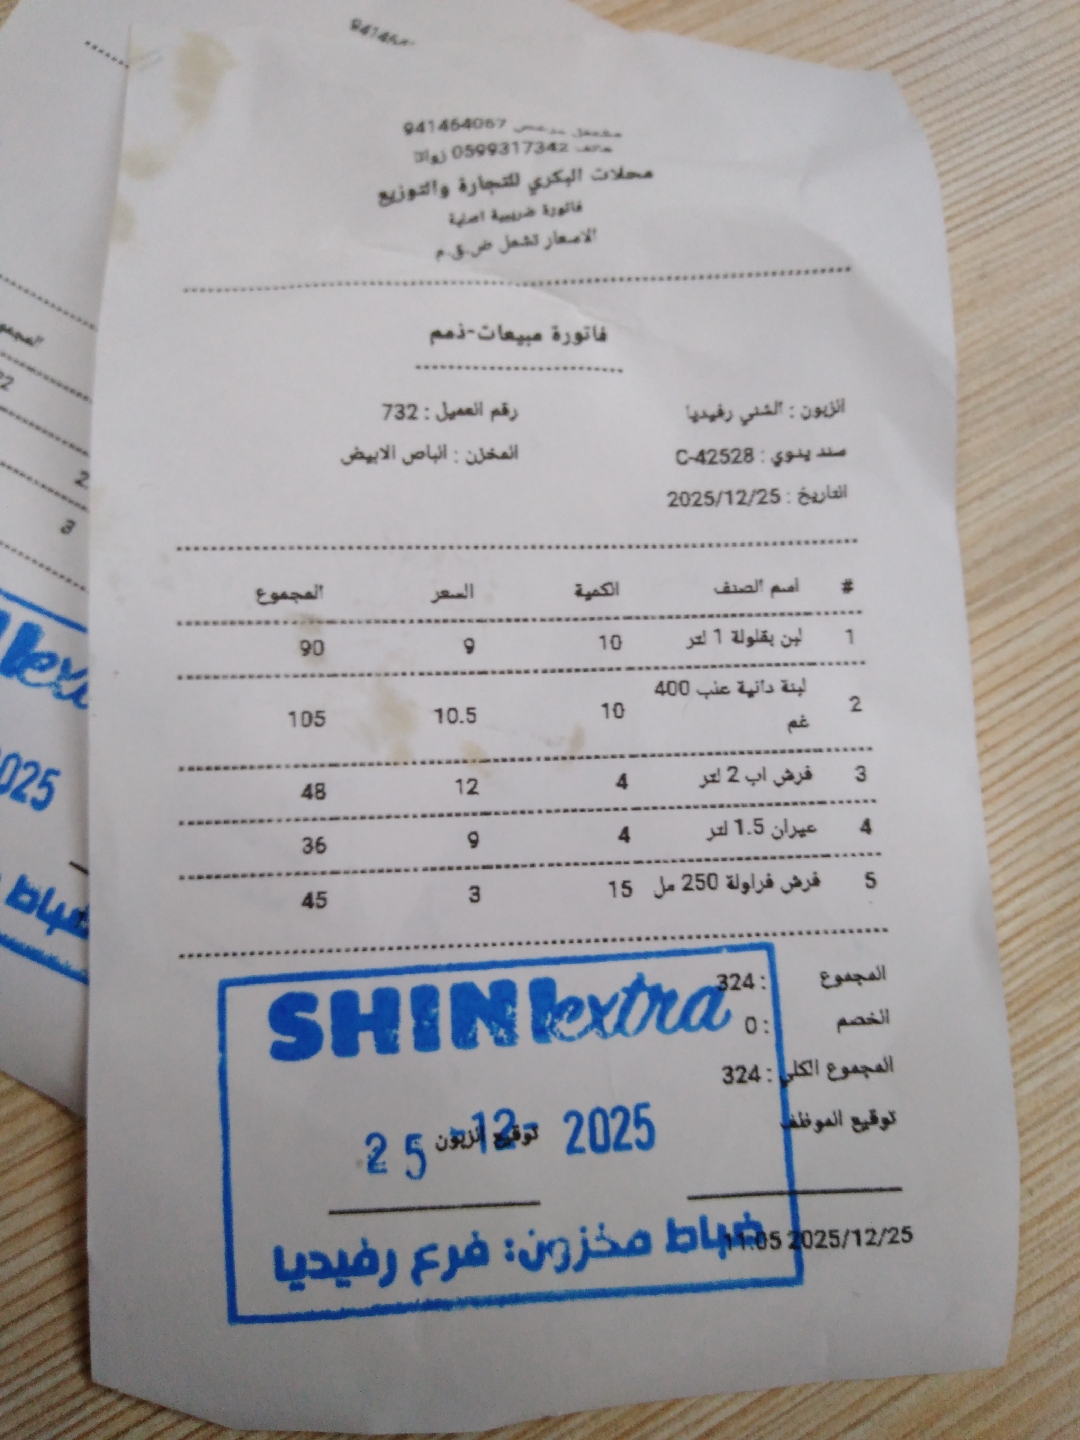 941464067
مشتغل مرخص 941464067
هاتف 0599317342 زواتا
محلات البكري للتجارة والتوزيع
فاتورة ضريبية اصلية
الاسعار تشمل ض.ق.م
فاتورة مبيعات-ذمم
الزبون : الشني رفيديا رقم العميل : 732
سند يدوي : C-42528 المخزن : الباص الابيض
التاريخ : 2025/12/25
# اسم الصنف الكمية السعر المجموع
1 لبن بقلولة 1 لتر 10 9 90
2 لبنة دانية عنب 400 غم 10 10.5 105
3 فرش اب 2 لتر 4 12 48
4 عيران 1.5 لتر 4 9 36
5 فرش فراولة 250 مل 15 3 45
المجموع : 324
الخصم : 0
المجموع الكلي : 324
توقيع الموظف توقيع الزبون
2025/12/25 11:05
SHINI extra
25 -12- 2025
ضباط مخزون: فرع رفيديا
المجموع
2
3
extra
2025
ضباط